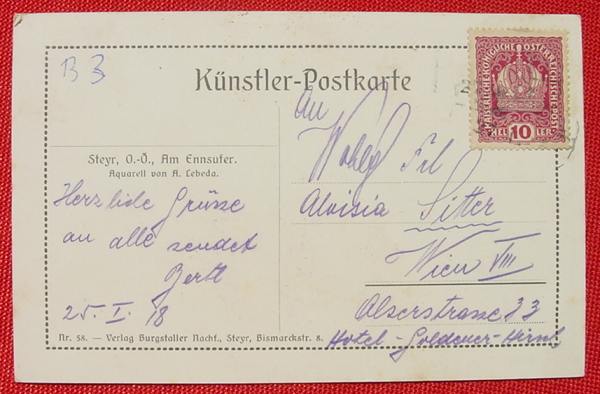 B 3
Künstler-Postkarte
KAISERLICHE KÖNIGLICHE ÖSTERREICHISCHE POST
HEL 10 LER
Steyr, O.-Ö., Am Ennsufer.
Aquarell von A. Lebeda.
Herzliche Grüsse
an alle sendet
Bertl
25. I. 18
An
Wohlg Frl
Aloisia Sitter
Wien VIII
Alserstrasse 33
Hotel - Goldener - Hirsch
Nr. 58. — Verlag Burgstaller Nachf., Steyr, Bismarckstr. 8.